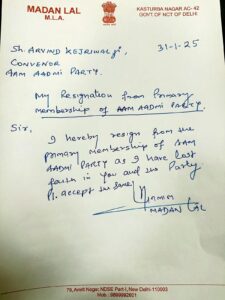 MADAN LAL
M.L.A.
KASTURBA NAGAR AC- 42
GOVT. OF NCT OF DELHI
Sh. ARVIND KEJRIWAL Ji,
31-1-25
CONVENOR
AAM AADMI PARTY.
My Resignation from Primary
membership of AAM AADMI PARTY.
Sir,
I hereby resign from the
primary membership of AAM
AADMI PARTY as I have lost
faith in you and the Party
Pl. accept the same
MADAN LAL
79, Amrit Nagar, NDSE Part-I, New Delhi-110003
Mob.: 9899992601